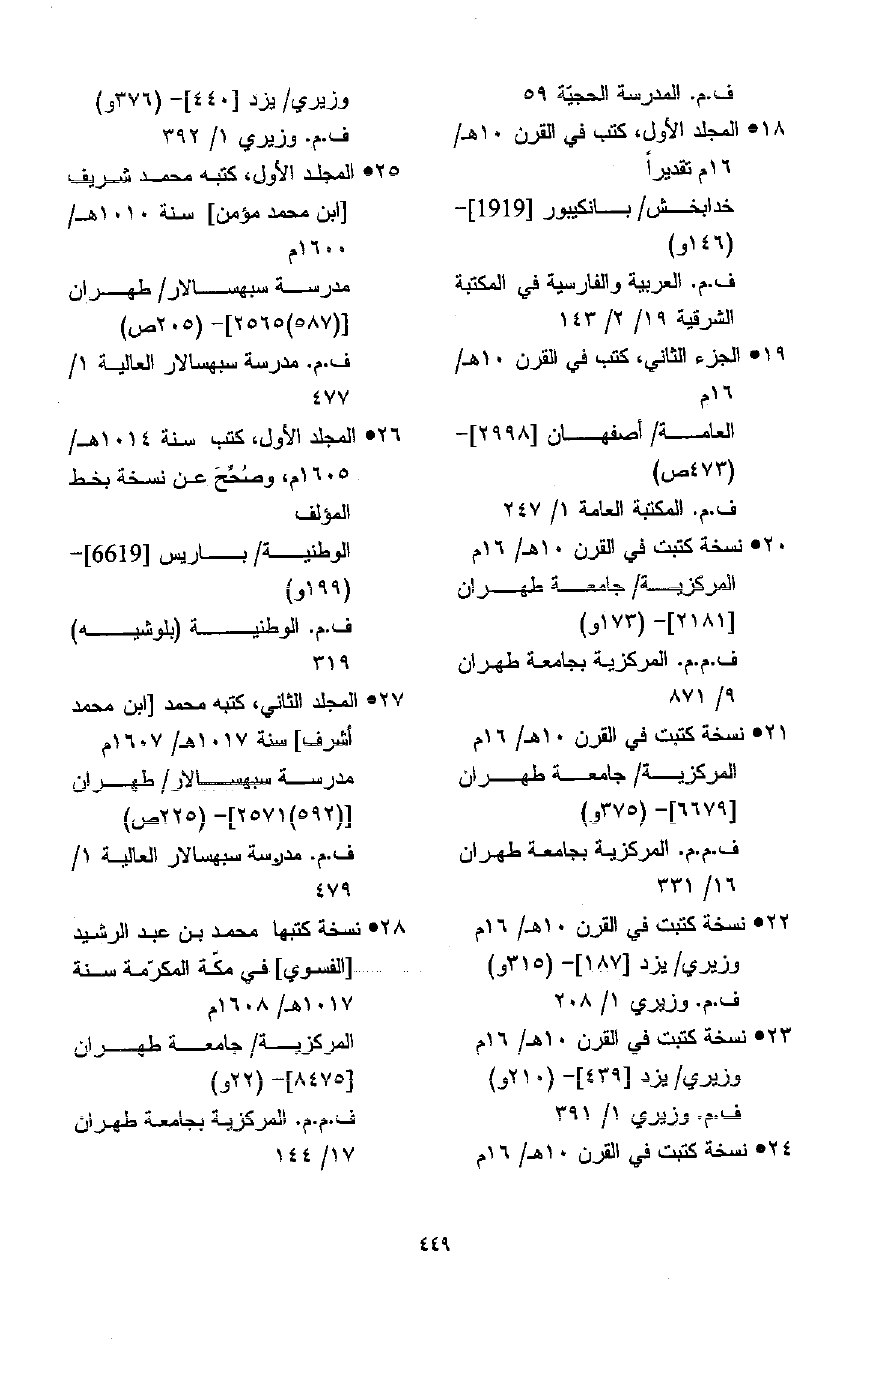 ف.م. المدرسة الحجيّة ٥٩
١٨• المجلد الأول، كتب في القرن ١٠هـ/
١٦م تقديراً
خدابخش/ بانكيبور [1919]-
(١٤٦و)
ف.م. العربية والفارسية في المكتبة
الشرقية ١٩/ ٢/ ١٤٣
١٩• الجزء الثاني، كتب في القرن ١٠هـ/
١٦م
العامة/ أصفهان [٢٩٩٨]-
(٤٧٣ص)
ف.م. المكتبة العامة ١/ ٢٤٧
٢٠• نسخة كتبت في القرن ١٠هـ/ ١٦م
المركزية/ جامعة طهران
[٢١٨١]- (١٧٣و)
ف.م.م. المركزية بجامعة طهران
٩/ ٨٧١
٢١• نسخة كتبت في القرن ١٠هـ/ ١٦م
المركزية/ جامعة طهران
[٦٦٧٩]- (٣٧٥و)
ف.م.م. المركزية بجامعة طهران
١٦/ ٣٣١
٢٢• نسخة كتبت في القرن ١٠هـ/ ١٦م
وزيري/ يزد [١٨٧]- (٣١٥و)
ف.م. وزيري ١/ ٢٠٨
٢٣• نسخة كتبت في القرن ١٠هـ/ ١٦م
وزيري/ يزد [٤٣٩]- (٢١٠و)
ف.م. وزيري ١/ ٣٩١
٢٤• نسخة كتبت في القرن ١٠هـ/ ١٦م
وزيري/ يزد [٤٤٠]- (٣٧٦و)
ف.م. وزيري ١/ ٣٩٢
٢٥• المجلد الأول، كتبه محمد شريف
[ابن محمد مؤمن] سنة ١٠١٠هـ/
١٦٠٠م
مدرسة سبهسالار/ طهران
[(٥٨٧)٢٥٦٥]- (٢٠٥ص)
ف.م. مدرسة سبهسالار العالية ١/
٤٧٧
٢٦• المجلد الأول، كتب سنة ١٠١٤هـ/
١٦٠٥م، وصُحِّحَ عن نسخة بخط
المؤلف
الوطنية/ باريس [6619]-
(١٩٩و)
ف.م. الوطنية (بلوشيه)
٣١٩
٢٧• المجلد الثاني، كتبه محمد [ابن محمد
أشرف] سنة ١٠١٧هـ/ ١٦٠٧م
مدرسة سبهسالار/ طهران
[(٥٩٢)٢٥٧١]- (٢٢٥ص)
ف.م. مدرسة سبهسالار العالية ١/
٤٧٩
٢٨• نسخة كتبها محمد بن عبد الرشيد
[الفسوي] في مكّة المكرّمة سنة
١٠١٧هـ/ ١٦٠٨م
المركزية/ جامعة طهران
[٨٤٧٥]- (٢٢و)
ف.م.م. المركزية بجامعة طهران
١٧/ ١٤٤
٤٤٩